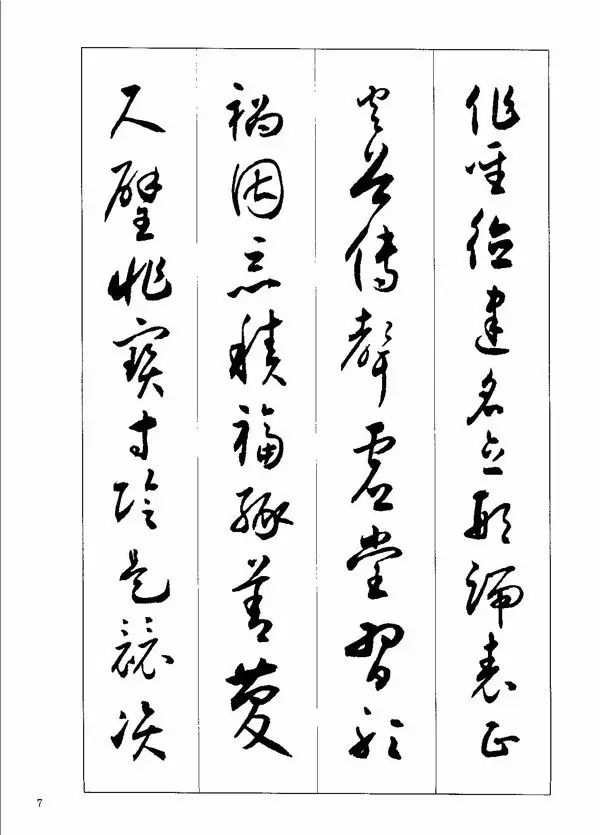 作聖德建名立形端表正
空谷傳聲虛堂習聽
禍因惡積福緣善慶
尺璧非寶寸陰是競資
7